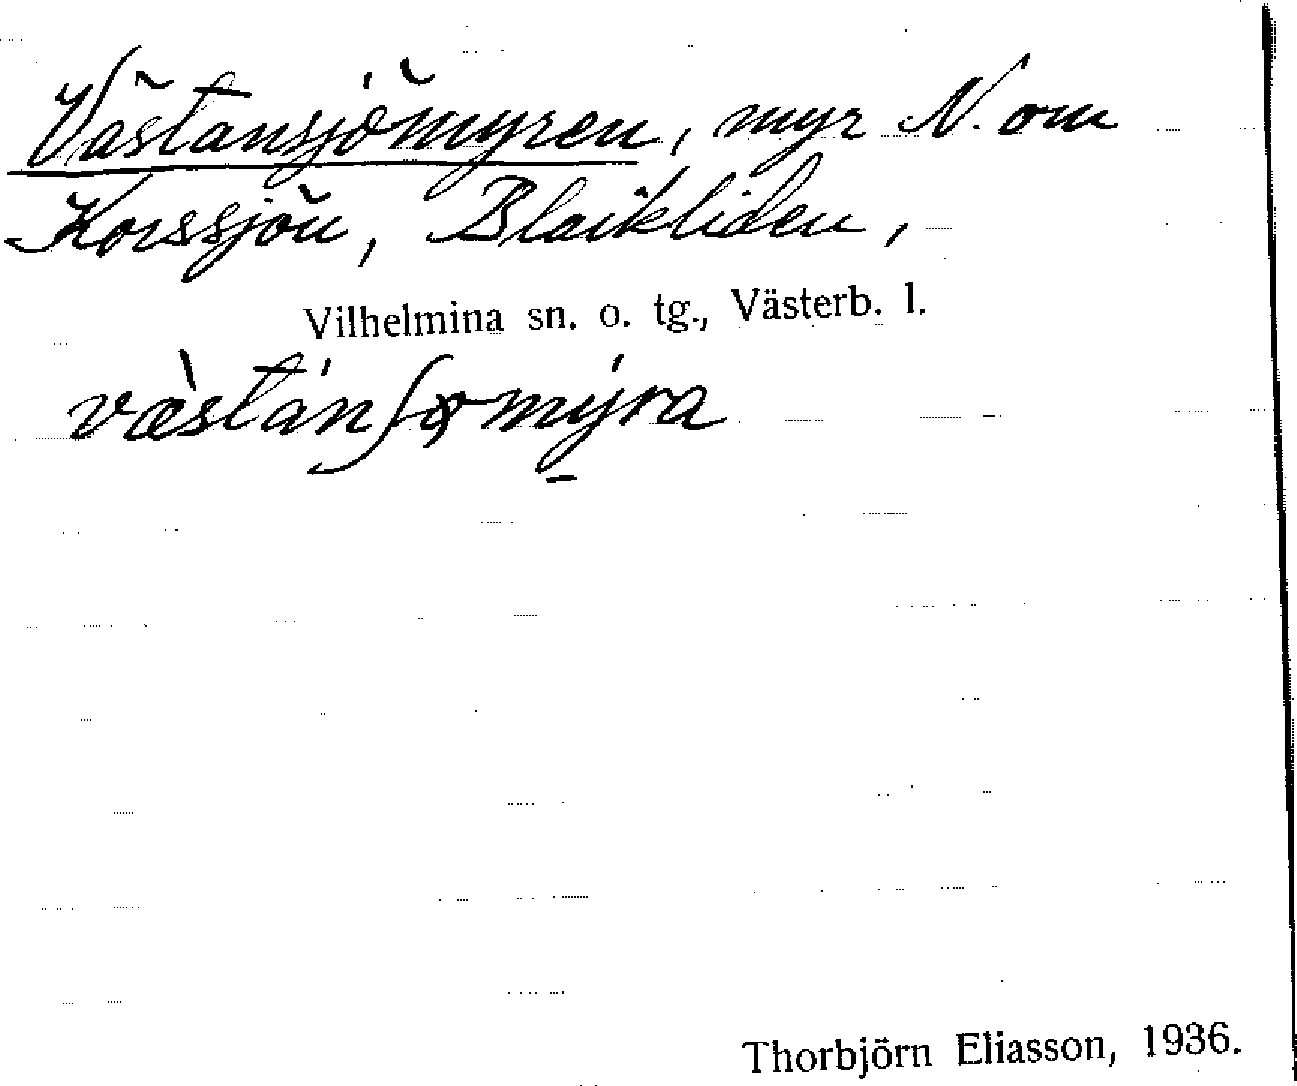 Västansjömyren, myr N. om
Korssjön, Blaikliden,
Vilhelmina sn. o. tg., Västerb. l.
Thorbjörn Eliasson, 1936.